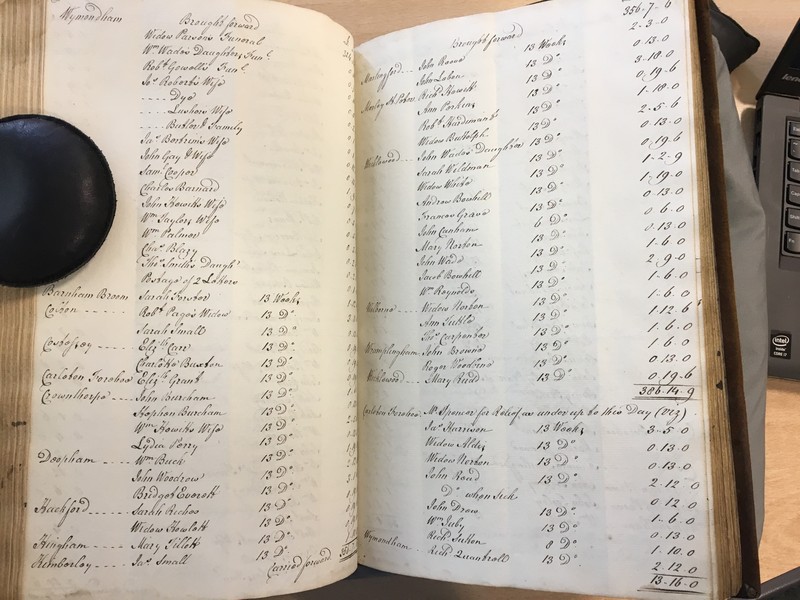 Wymondham
Brought forward
Widow Parsons Funeral
Wm Wades Daughters Funl
Robt Gowolls Funl
Jas Roberts Wife
---- Dye
---- Lushers Wife
---- Butler & Family
Jas Bertrams Wife
John Gay & Wife
Saml Cooper
Charles Barnard
John Howitts Wife
Wm Taylors Wife
Wm Palmer
Chas Blazy
Thos Smiths Daughr
Postage of 2 Letters
Barnham Broom Sarah Forster 13 Weeks
Coston ---- Robt Pages Widow 13 Do
Sarah Small 13 Do
Costessey ---- Elizth Carr 13 Do
Charlotte Buxton 13 Do
Carleton Forehoe Elizth Grant 13 Do
Crownthorpe ---- John Burcham 13 Do
Stephen Burcham 13 Do
Wm Howitts Wife 13 Do
Lydia Perry 13 Do
Deopham ---- Wm Buck 13 Do
John Woodrow 13 Do
Bridget Everett 13 Do
Hackford ---- Sarah Riches 13 Do
Widow Howlett 13 Do
Hingham ---- Mary Tillott 13 Do
Kimberley ---- Jas Small 13 Do
Carried forward
Brought forward 356.7.6
John Roose 13 Weeks 2.3.0
John Lebon 13 Do 0.13.0
Richd Howitt 13 Do 3.18.0
Ann Perkins 13 Do 0.19.6
Robt Hardiman 13 Do 1.18.0
Widow Buttolph 13 Do 2.5.6
Wicklewood ---- John Wades Daughter 13 Do 0.13.0
Sarah Weldman 13 Do 0.19.6
Widow White 13 Do 1.2.9
Andrew Bowhill 13 Do 1.19.0
Frances Grave 13 Do 0.13.0
John Canham 6 Do 0.6.0
Mary Norton 13 Do 0.13.0
John Wade 13 Do 1.6.0
Jacob Bowhill 13 Do 2.9.0
Wm Reynolds 13 Do 1.6.0
Welborne ---- Widow Norton 13 Do 1.6.0
Ann Tuttle 13 Do 1.12.6
Thos Carpenter 13 Do 1.6.0
Wramplingham John Browne 13 Do 1.6.0
Roger Goodrum 13 Do 0.13.0
Wicklewood ---- Mary Rudd 13 Do 0.19.6
386.14.9
Carleton Forehoe Mr Spencer for Relief as under up to this Day (Viz)
Jas Harrison 13 Weeks 3.5.0
Widow Alden 13 Do 0.13.0
Widow Norton 13 Do 0.13.0
John Read 13 Do 2.12.0
Do when sick 0.12.0
John Drew 13 Do 1.6.0
Wm Juby 13 Do 0.13.0
Wymondham Richd Sutton 8 Do 1.10.0
Richd Quantrell 13 Do 2.12.0
13.16.0
intel